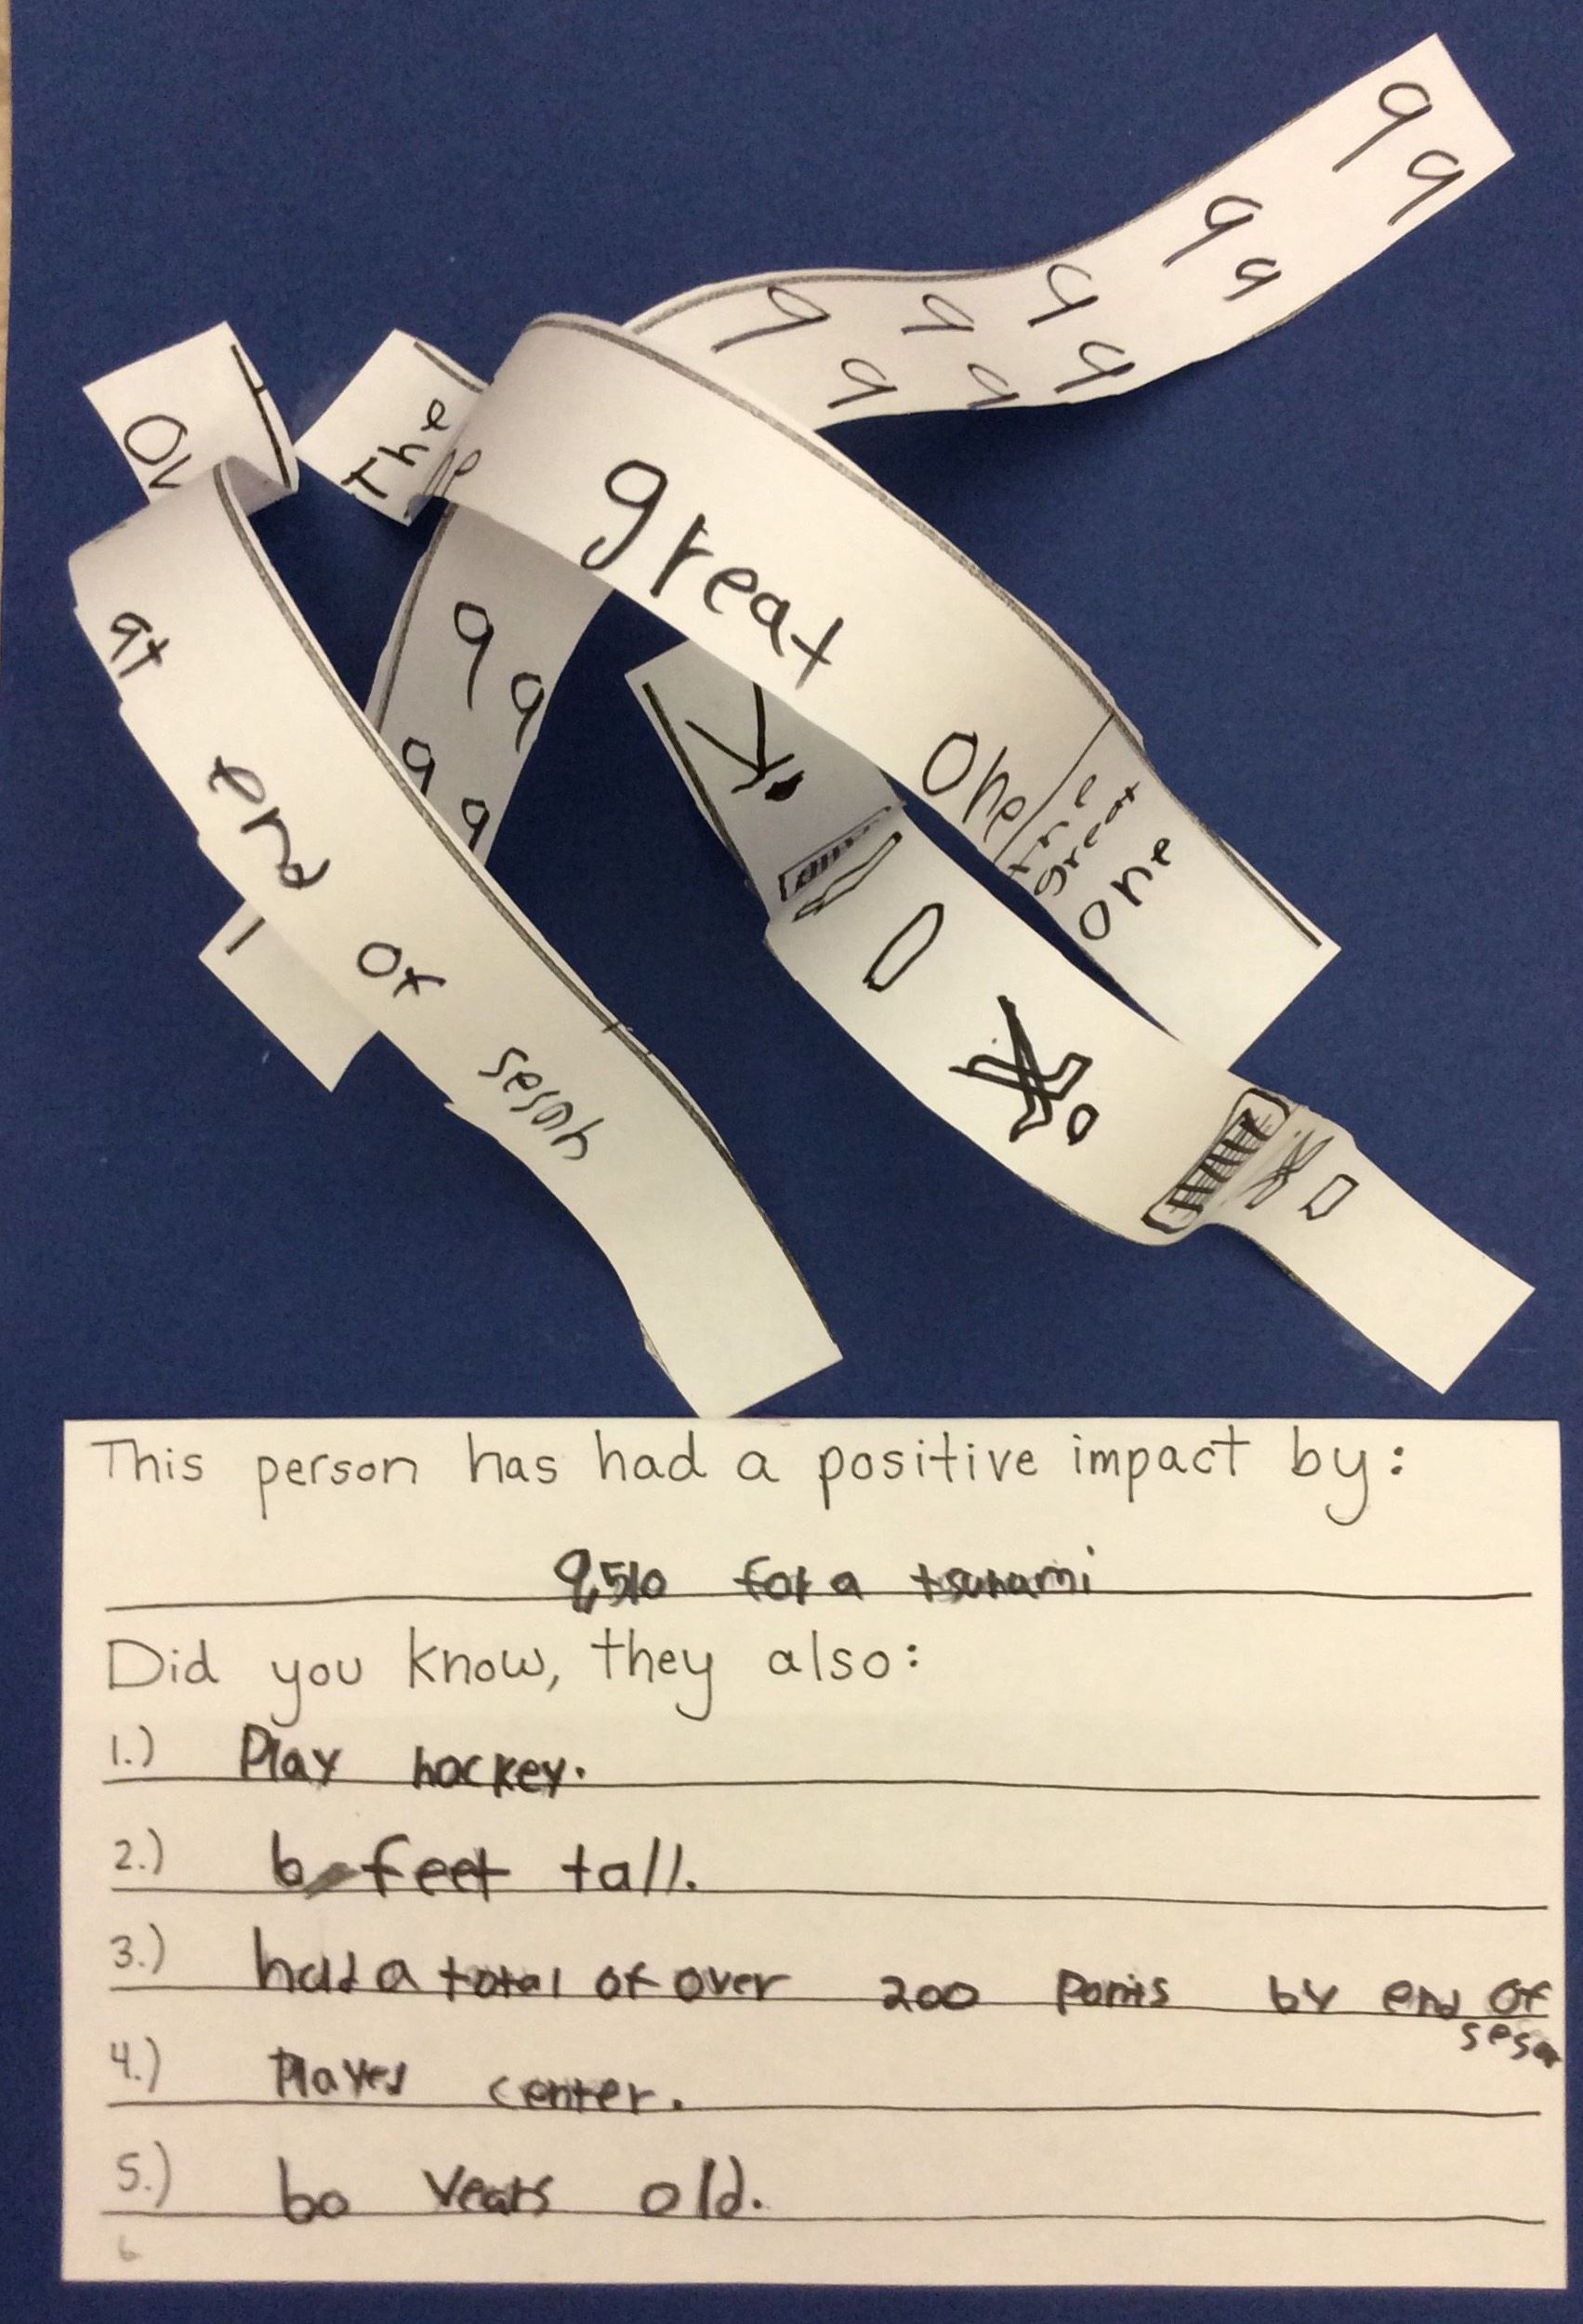 99
99
99
99
99
The
great
one
the
great
one
99
99
at
end
of
sesoh
This person has had a positive impact by:
for a tsunami
Did you know, they also:
1.) Play hockey.
2.) 6 feet tall.
3.) had a total of over 200 Points by end of
4.) Played center.
5.) 60 years old.
6